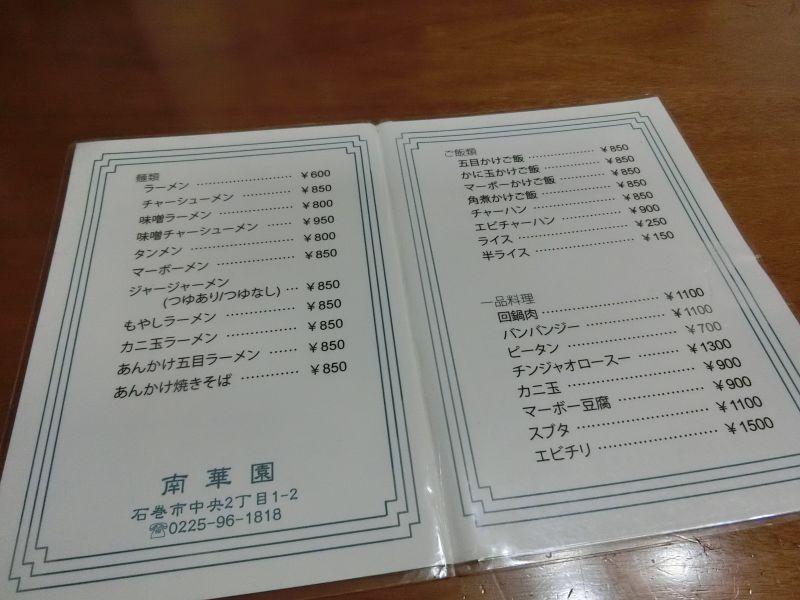 麺類
ラーメン ………………… ￥600
チャーシューメン ………… ￥850
味噌ラーメン ……………… ￥800
味噌チャーシューメン …… ￥950
タンメン …………………… ￥800
マーボーメン ……………… ￥850
ジャージャーメン
(つゆあり/つゆなし) … ￥850
もやしラーメン …………… ￥850
カニ玉ラーメン …………… ￥850
あんかけ五目ラーメン …… ￥850
あんかけ焼きそば ………… ￥850
南華園
石巻市中央2丁目1-2
☎0225-96-1818
ご飯類
五目かけご飯 ……………… ￥850
かに玉かけご飯 …………… ￥850
マーボーかけご飯 ………… ￥850
角煮かけご飯 ……………… ￥850
チャーハン ………………… ￥850
エビチャーハン …………… ￥900
ライス ……………………… ￥250
半ライス …………………… ￥150
一品料理
回鍋肉 ……………………… ￥1100
バンバンジー ……………… ￥1100
ピータン …………………… ￥700
チンジャオロースー ……… ￥1300
カニ玉 ……………………… ￥900
マーボー豆腐 ……………… ￥900
スブタ ……………………… ￥1100
エビチリ …………………… ￥1500